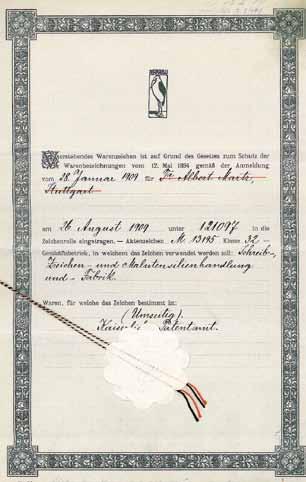 Vorstehendes Warenzeichen ist auf Grund des Gesetzes zum Schutz der
Warenbezeichnungen vom 12. Mai 1894 gemäß der Anmeldung
vom 28. Januar 1909 für Fa Albert Martz,
Stuttgart
am 26 August 1909 unter 121097 in die
Zeichenrolle eingetragen. — Aktenzeichen M. 13195 Klasse 32 -
Geschäftsbetrieb, in welchem das Zeichen verwendet werden soll: Schreib-,
Zeichen- und Malutensilienhandlung
und -Fabrik.
Waren, für welche das Zeichen bestimmt ist:
(Umseitig.)
Patentamt.